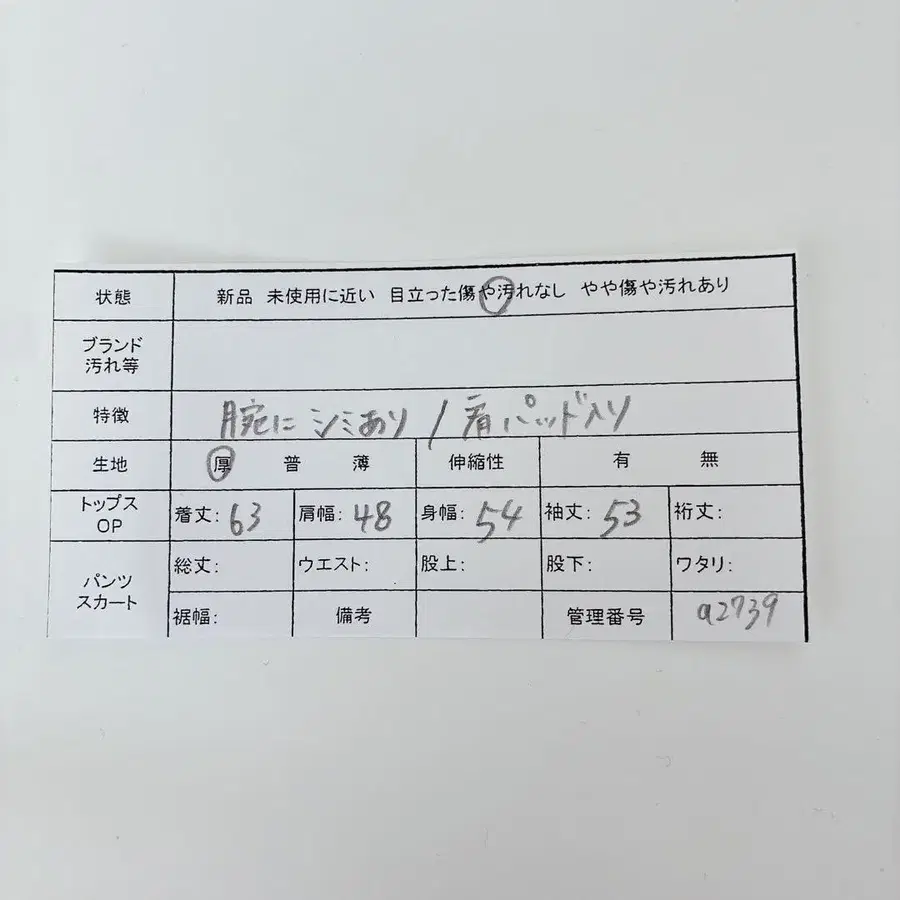 状態 新品 未使用に近い 目立った傷や汚れなし やや傷や汚れあり
ブランド
汚れ等
特徴 腕にシミあり / 肩パッド入り
生地 厚 普 薄 伸縮性 有 無
トップス
OP
着丈: 63 肩幅: 48 身幅: 54 袖丈: 53 裄丈:
パンツ
スカート
総丈: ウエスト: 股上: 股下: ワタリ:
裾幅: 備考 管理番号 a2739